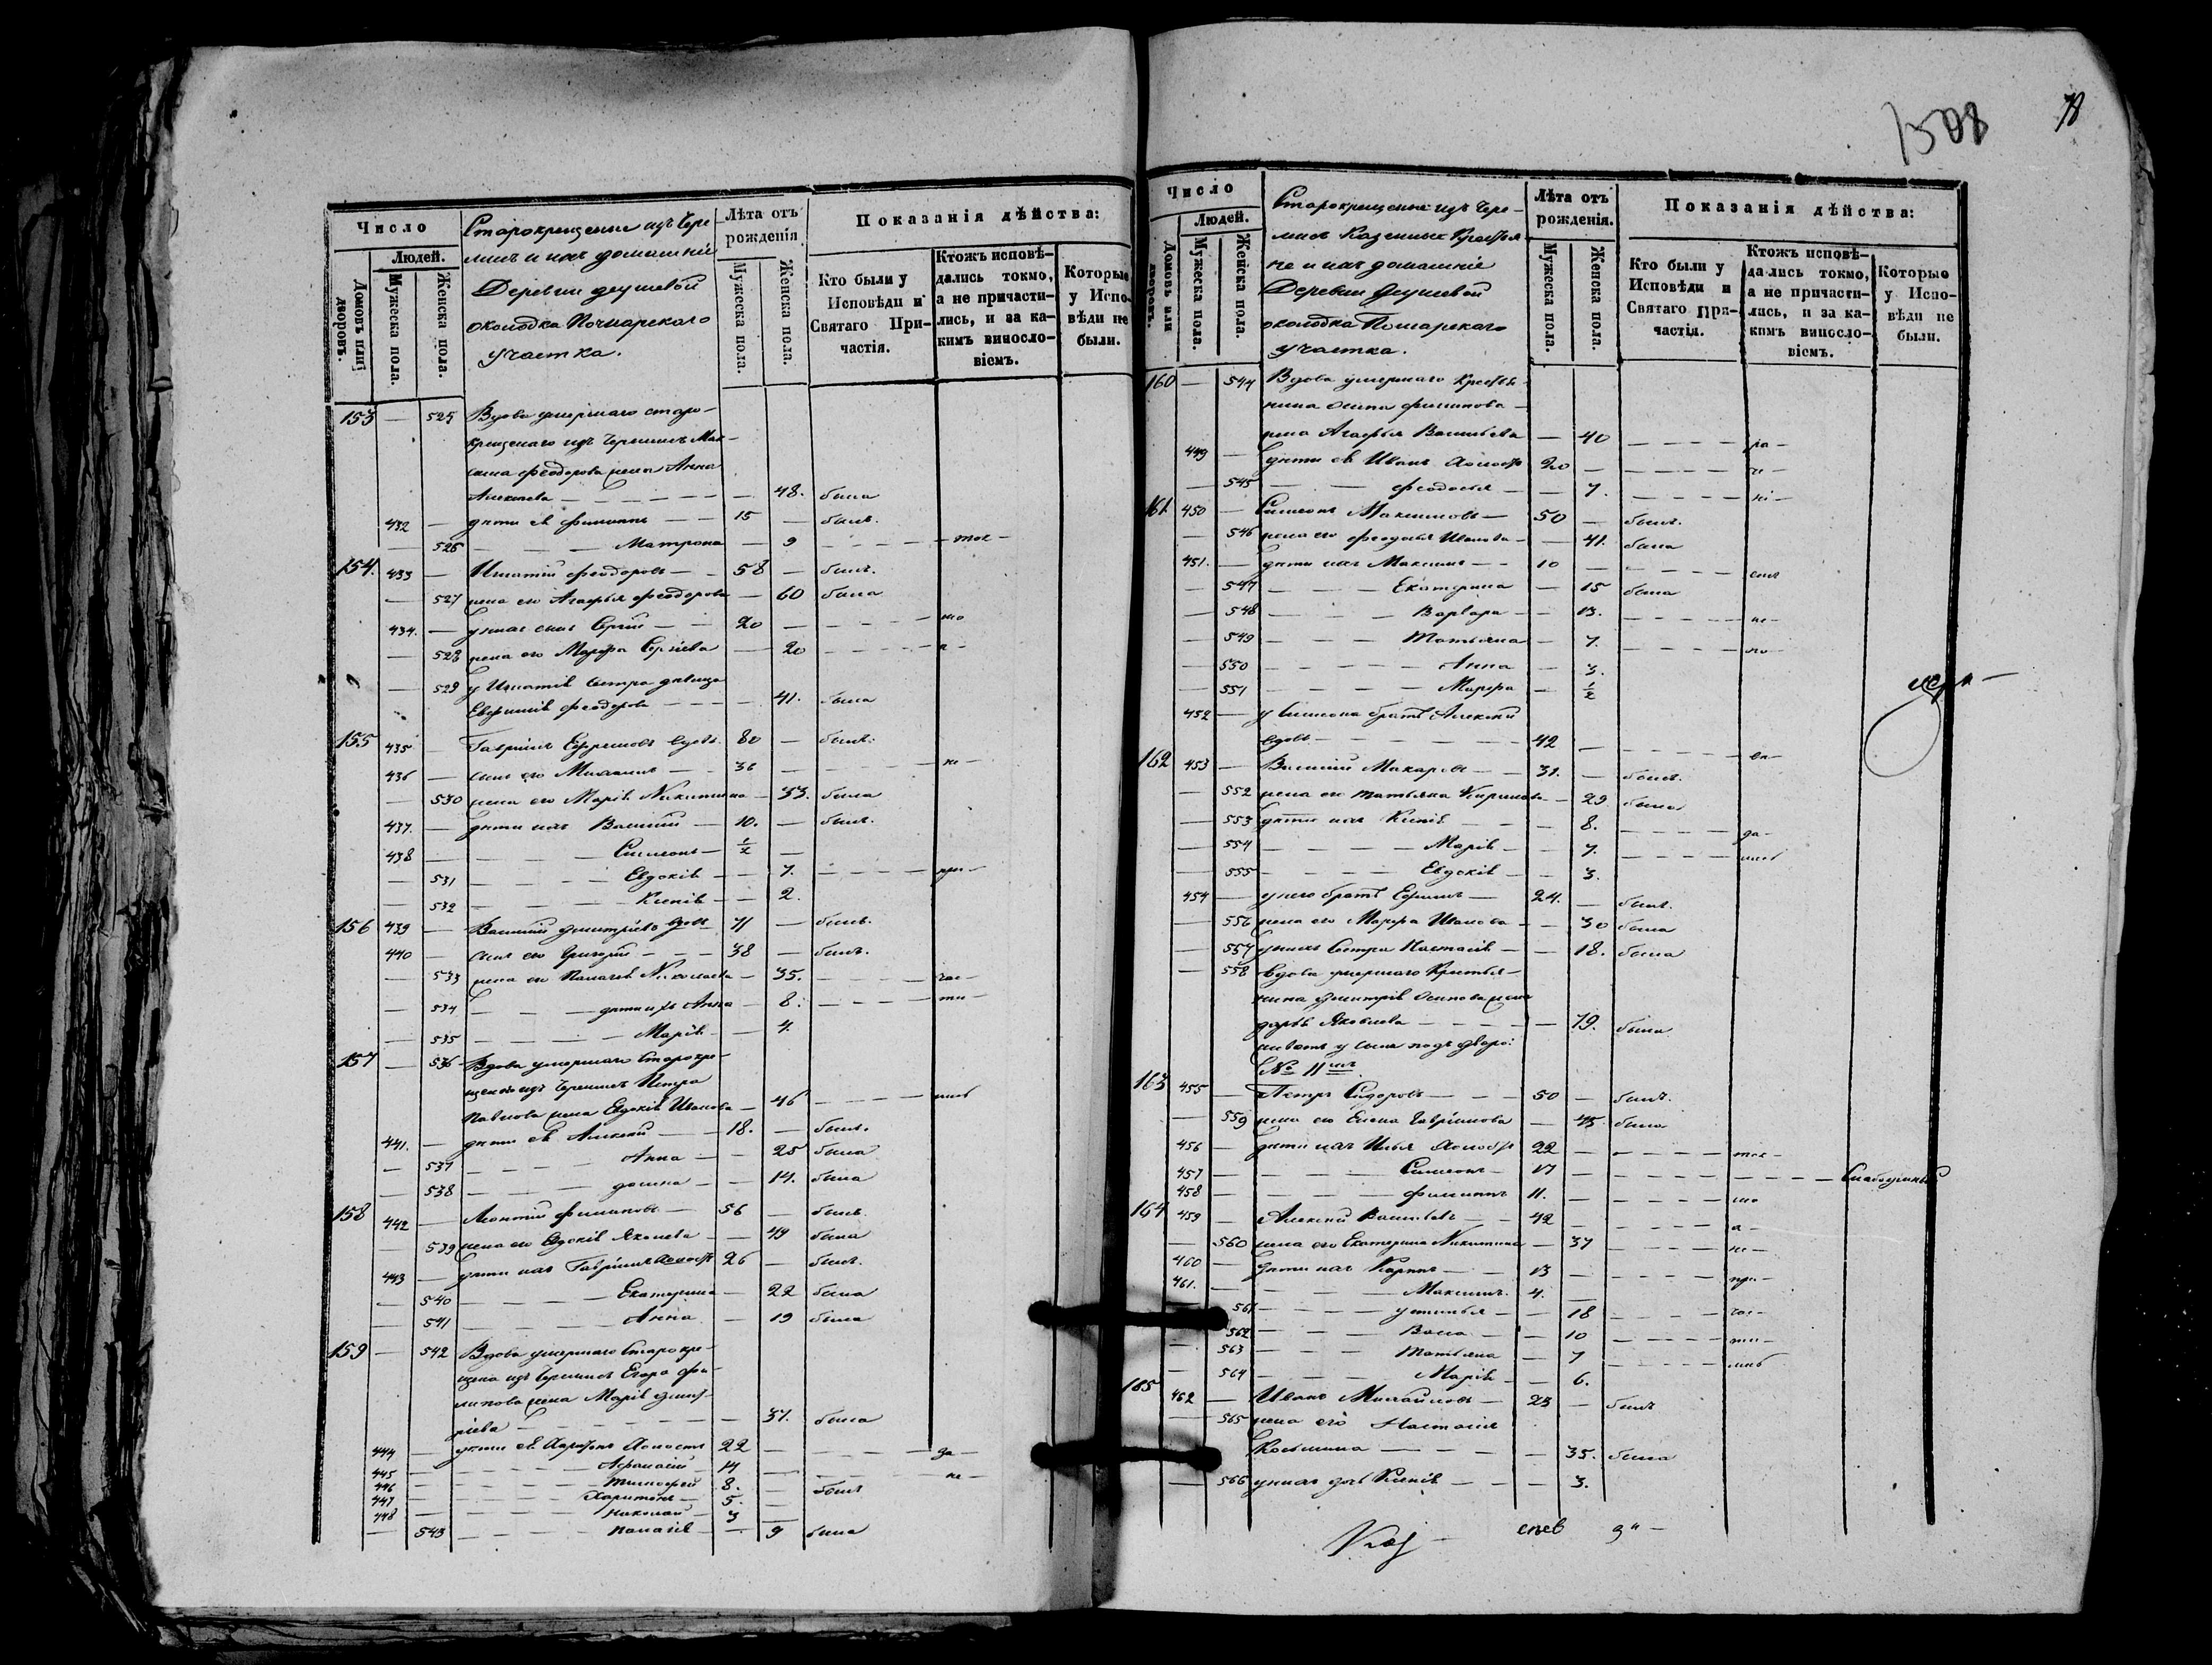 1508
78
Число
Людей.
Домовъ или дворовъ.
Мужеска пола.
Женска пола.
Старокрещенные изъ Чере-
мисъ и ихъ домашніе
Деревни
околодка
участка.
Лѣта отъ рожденія
Мужеска пола.
Женска пола.
Показанія дѣйства:
Кто были у Исповѣди и Святаго При-частія.
Ктожъ исповѣ-дались токмо, а не причасти-лись, и за ка-кимъ винослo-віемъ.
Которые у Испо-вѣди не были.
153 — 525 Вдова умершаго старо-
крещенаго изъ Черемисъ Мак-
сима Феодорова жена Анна
Алексѣева — — 48. была
432 — дѣти ея Филиппъ — — 15 — былъ.
— 526 — — Матрона — 9 — — —
154. 433 — Игнатій Феодоровъ — — 58 — былъ.
— 527 жена его Агафья Феодорова — 60 была
434. — у нихъ сынъ Сергій — — 20 — — — —
— 528 жена его Марфа Сергіева — 20 — — —
— 529 у Игнатія сестра дѣвица
Евфимія Феодорова — — — 41. была
155 435 — Гавріилъ Ефремовъ вдовъ. 80 — былъ.
436 — сынъ его Михаилъ — — 36 — — — —
— 530 жена его Марія Никитина — 33. была
437. — дѣти ихъ Василій — 10. — былъ.
438 — — — Симеонъ — ½ —
— 531 — — — Евдокія — — 7. — — — при—
— 532 — — — Ксенія — — 2.
156 439 — Василій Димитріевъ вдовъ 71 — былъ.
440 — сынъ его Григорій — — 38 — былъ.
— 533 жена его Пелагея Николаева — 35. — — — час—
— 534 — — дѣти ихъ Анна — 8. — — — ти—
— 535 — — — Марія — — 4.
157 — 536 Вдова умершаго Старокре-
щенаго изъ Черемисъ Петра
Павлова жена Евдокія Иванова — 46 — — —
441. — дѣти ея Алексѣй — — 18. — былъ.
— 537 — — — Анна — — 25 была
— 538 — — — — — 14. была
158 442 — Леонтій Филиповъ — 56 — былъ.
— 539 жена его Евдокія Яковлева — 49 была
443 — дѣти ихъ Гавріилъ холостъ 26 — былъ.
— 540 — — — Екатерина — 22 была
— 541 — — — Анна — 19 была
159 — 542 Вдова умершаго Старокре-
щена изъ Черемисъ Егора Фи-
липова жена Марія Димит-
ріева — — — — 37. была
444 — дѣти ея холостъ 22 — — — —
445 — — — Афанасій — 14 — — — —
446 — — — Тимофей 8. — былъ
447 — — — Харитонъ — 5. —
448 — — — Николай — 3 —
— 543 — — — Пелагея — — 9 была
Число
Людей.
Домовъ или дворовъ.
Мужеска пола.
Женска пола.
Старокрещеные изъ Чере-
мисъ Казенные Крестья-
не и ихъ домашніе
Деревни
околодка
участка.
Лѣта отъ рожденія.
Мужеска пола.
Женска пола.
Показанія дѣйства:
Кто были у Исповѣди и Святаго При-частія.
Ктожъ исповѣ-дались токмо, а не причасти-лись, и за ка-кимъ винослo-віемъ.
Которые у Испо-вѣди не были.
160 — 544 Вдова умершаго Крестья-
нина Осипа Филипова
жена Агафья Васильева — 40 — — —
449 — дѣти ея Иванъ холостъ 20 — — — —
— 545 — — Феодосья — — 7. — — —
161. 450 — Симеонъ Максимовъ — 50 — былъ.
— 546 жена его Феодосья Иванова — — 41. была
451. — дѣти ихъ Максимъ — — 10 — — — —
— 547 — — — Екатерина — 15 была
— 548 — — — Варвара — — 13. — — —
— 549 — — — Татьяна — 7. — — —
— 550 — — — Анна — 3.
— 551 — — — Марфа — ½
452 — у Симеона братъ Алексѣй
вдовъ — — — 42 — — — —
162 453 — Василій Макаровъ — — 31. — былъ.
— 552 жена его Татьяна Кирилова — — 29. была
— 553 дѣти ихъ Ксенія — — 8. — — —
— 554 — — — Марія — — 7. — — —
— 555 — — — Евдокія — — 3.
454 — у него братъ Ефимъ — 24. — былъ.
— 556 жена его Марфа Иванова — — 30 была
— 557 у нихъ сестра Настасія — — 18. была
— 558 Вдова умершаго Крестья-
нина Димитрія Осипова жена
Дарья Яковлева — — — 79. была
живетъ у сына подъ дворо:
№ 11мъ.
163 455 — Петръ Сидоровъ — — 50 — былъ.
— 559 жена его Елена Гавріилова — 45 была
456 — дѣти ихъ Илья холостъ 22 — — — —
457 — — — Симеонъ — 17 — — — — Слабоумный
458 — — — Филиппъ 11. — — — —
164 459 — Алексѣй Васильевъ — 42 — — — —
— 560 жена его Екатерина Никитина — 37 — — —
460 — дѣти ихъ Карпъ — — 13 — — — при—
461. — — — Максимъ. 4. —
— 561 — — — Устинья — — 18 — — — час—
— 562 — — — — — 10 — — — ти—
— 563 — — — Татьяна — 7 — — —
— 564 — — — Марія — — 6.
165 462 — Иванъ Михайловъ — 23 — былъ
— 565 жена его Настасія
Козьмина — — — — 35. была
— 566 у нихъ дочь Ксенія — — — 3.